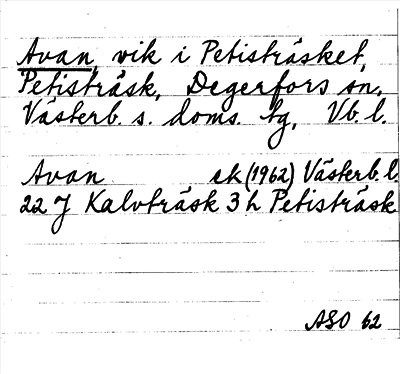 Avan, vik i Petisträsket,
Petisträsk, Degerfors sn.
Västerb. s. doms. tg, Vb. l.
Avan ek (1962) Västerb. l.
22 J Kalvträsk 3 h Petisträsk
ASO 62